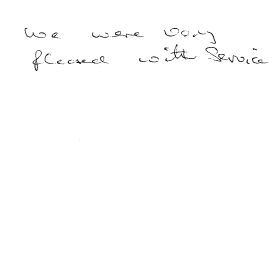 We were very
pleased with Service